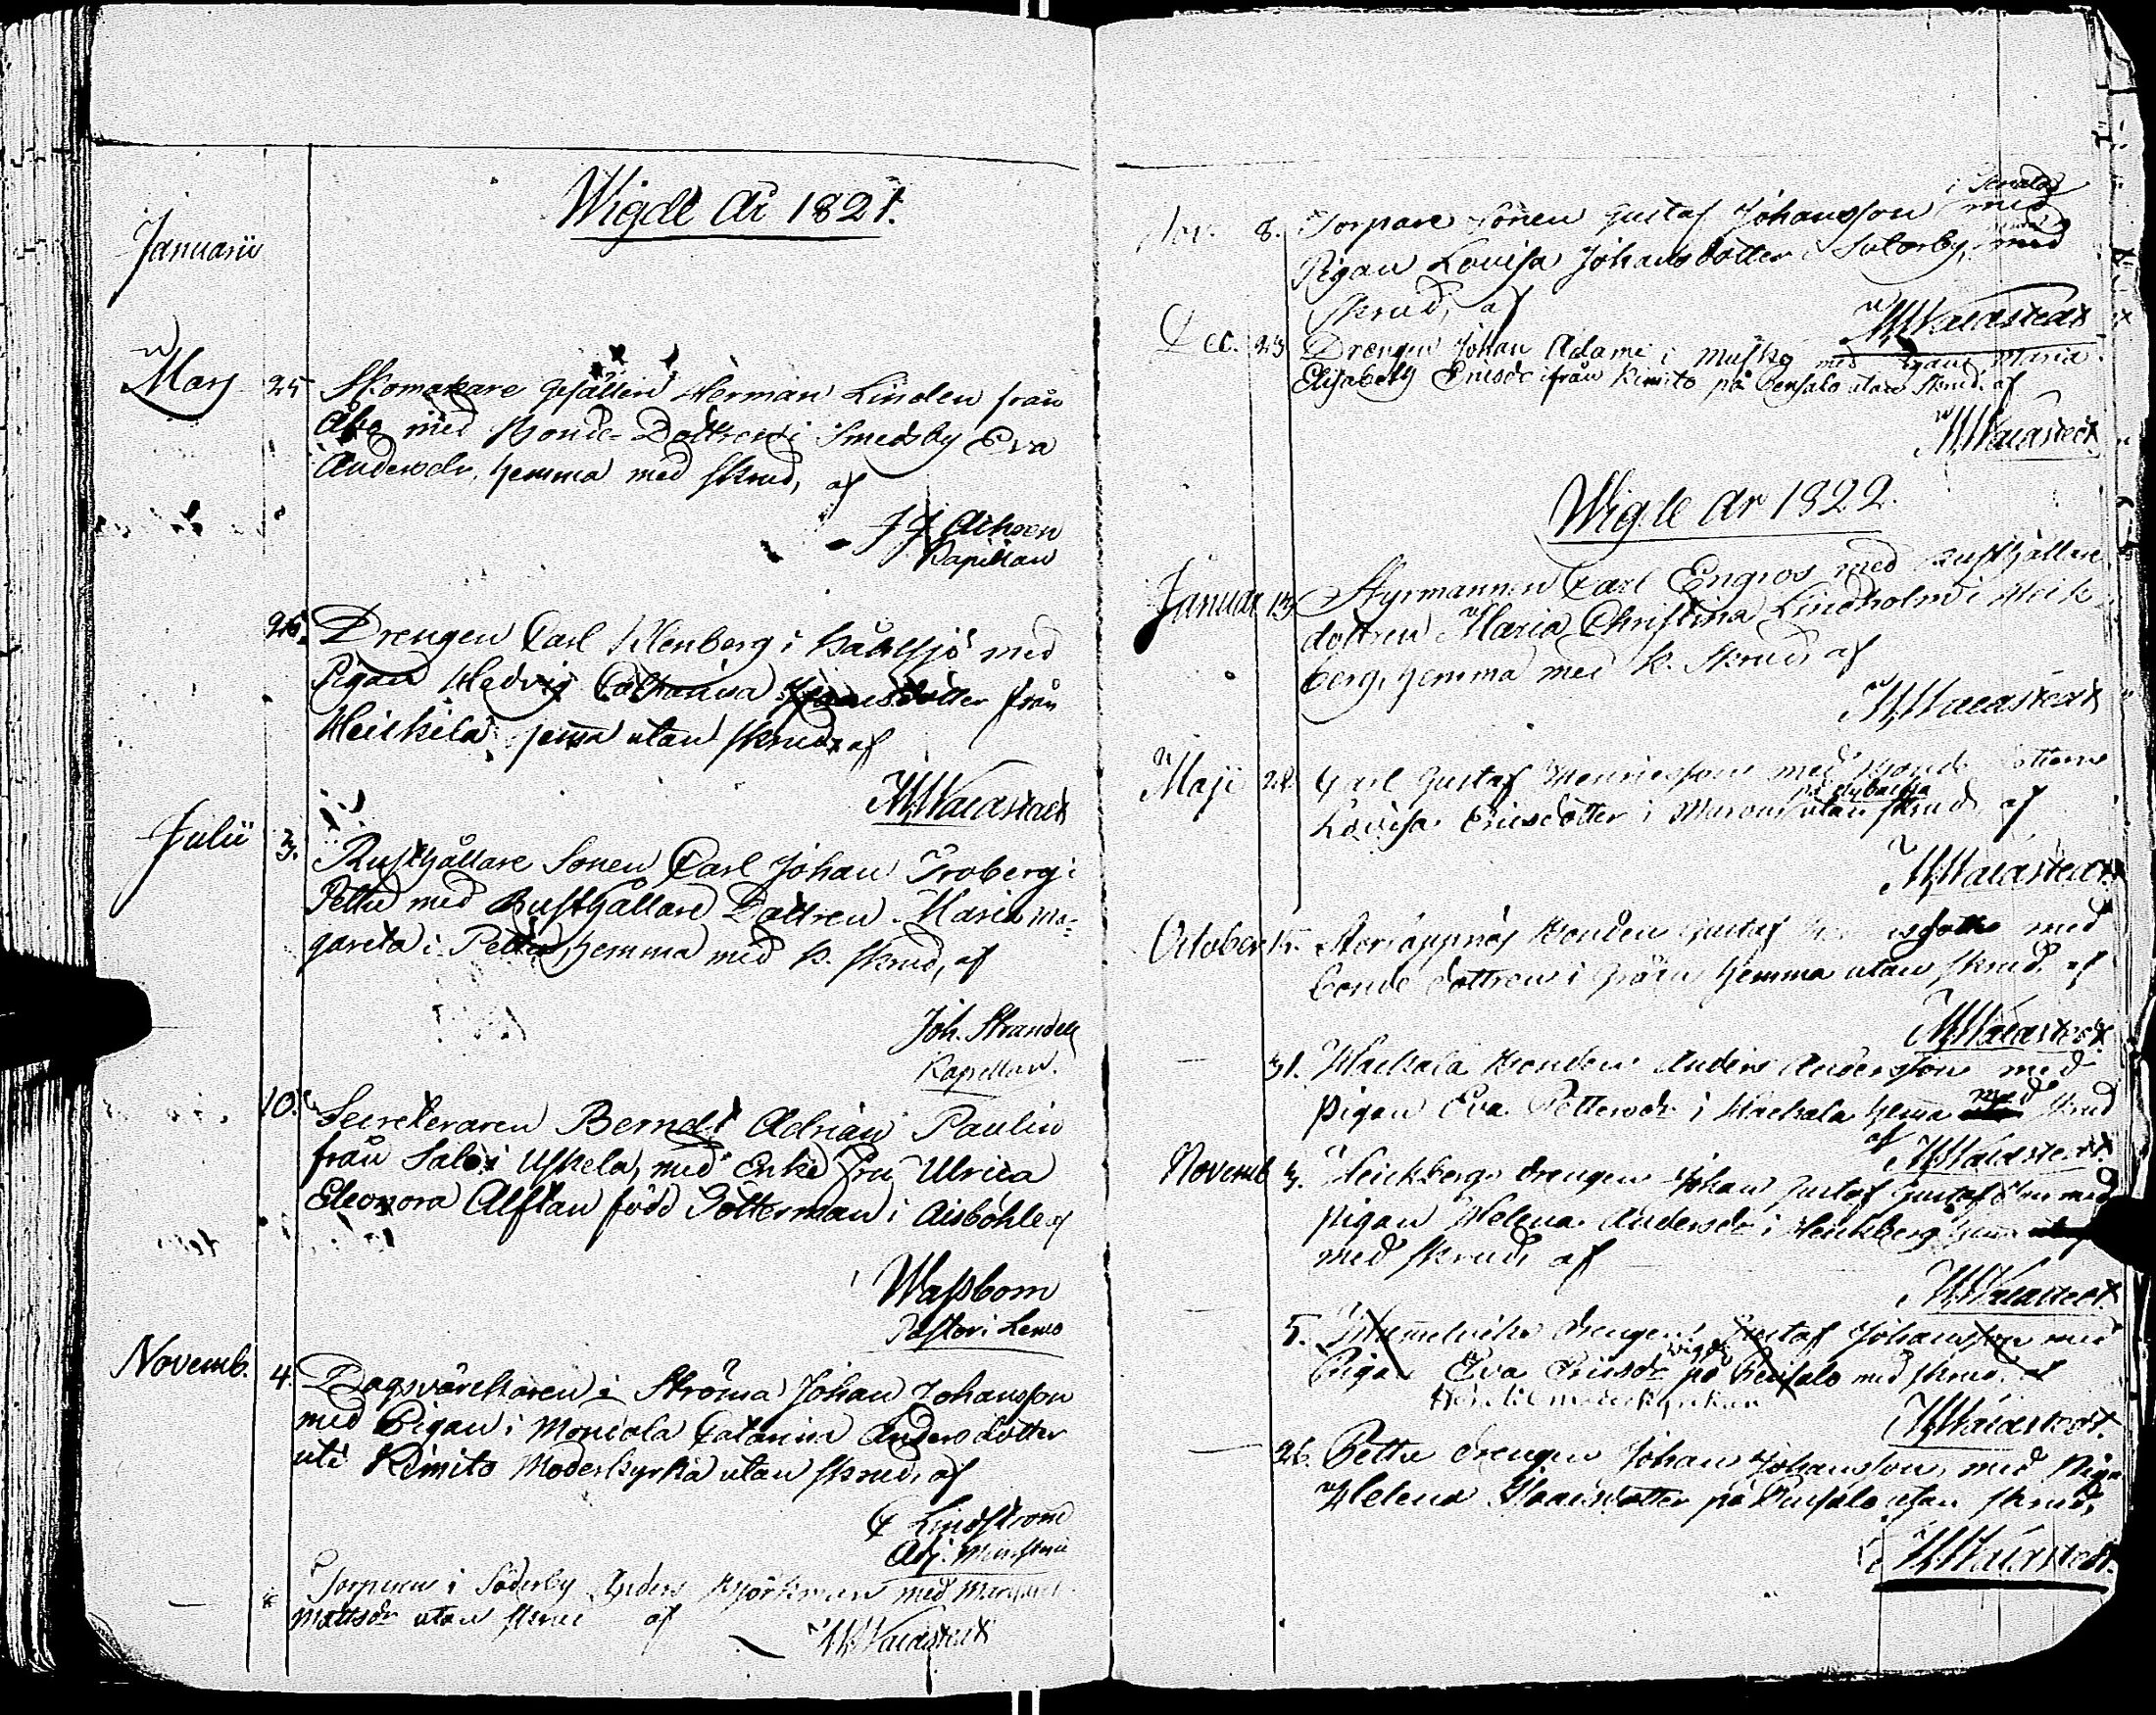 Wigde År 1821.
Januarii
Mars 25 Skomakare Gesällen Herman Linden från
Åbo med Bonde-Dottren i Smedsby Eva
Andersdr, hemma med skrud, af
J J Aihsen
Kapellan
26. Drengen Carl Klenberg i Båtsjö med
Pigan Hedvig Catharina dotter från
Heikkilä hema utan skrud af
M Walstedt
Julii 3. Rusthållare Sonen Carl Johan Froberg i
Pettu med Rusthållare Dottren Maria Mar-
gareta i Pettu, hemma med k. skrud, af
Joh. Strandell
Kapellan.
10. Secreteraren Berndt Adrian Paulin
från Salo i Uskela, med Enke Fru Ulrica
Eleonora Alftan född Götterman i Aisböhle af
Wassbom
Pastor i Lemo
Novemb. 4. Dagsvärckaren i Ströma Johan Johansson
med Pigan i Moniola Catarina Andersdotter
uti Kimito Moderkyrka utan skrud, af
C Lindström
Adj. Minist
8 Torparen i Söderby Anders Björkman med
Mattsdr utan skrud af
M Walstedt
Nov. 8. Torpare Sonen Gustaf Johansson med
Pigan Lovisa Johansdotter i Sutarby, med
skrud, af
M Walstedt
Dec. 23 Drengen Johan Adami i med Pigan Maria
Elisabeth Ericsdr från Kimito på Finsalo utan skrud. af
M Walstedt
Wigde År 1822.
Januar 13. Styrmannen Carl Engros med Rusthållare
dottren Maria Christina Lindholm i Meik-
berg, hemma med k. skrud, af
M Walstedt
Maji 28. Carl Gustaf Henricsson med Bonde dottren
Lovisa Ericsdotter i utan skrud, af
M Walstedt
October 15. Bonden Gustaf med
bonde dottren i hemma utan skrud, af
M Walstedt
— 31. Makala Bonden Anders Andersson med
pigan Eva Pettersdr i Makala hema med skrud
af M Walstedt
Novemb 3. Meickbergs drengen Johan Gustaf Gustafsson med
pigan Helena Andersdr i Meickberg hema
med skrud, af
M Walstedt
5. drengen Gustaf Johansson med
Pigan Eva Ericsdr vigd på Finsalo med skrud. af
M Walstedt.
— 26. Pettu drengen Johan Johansson, med Pigan
Helena på Finsalo utan skrud,
af M Walstedt.